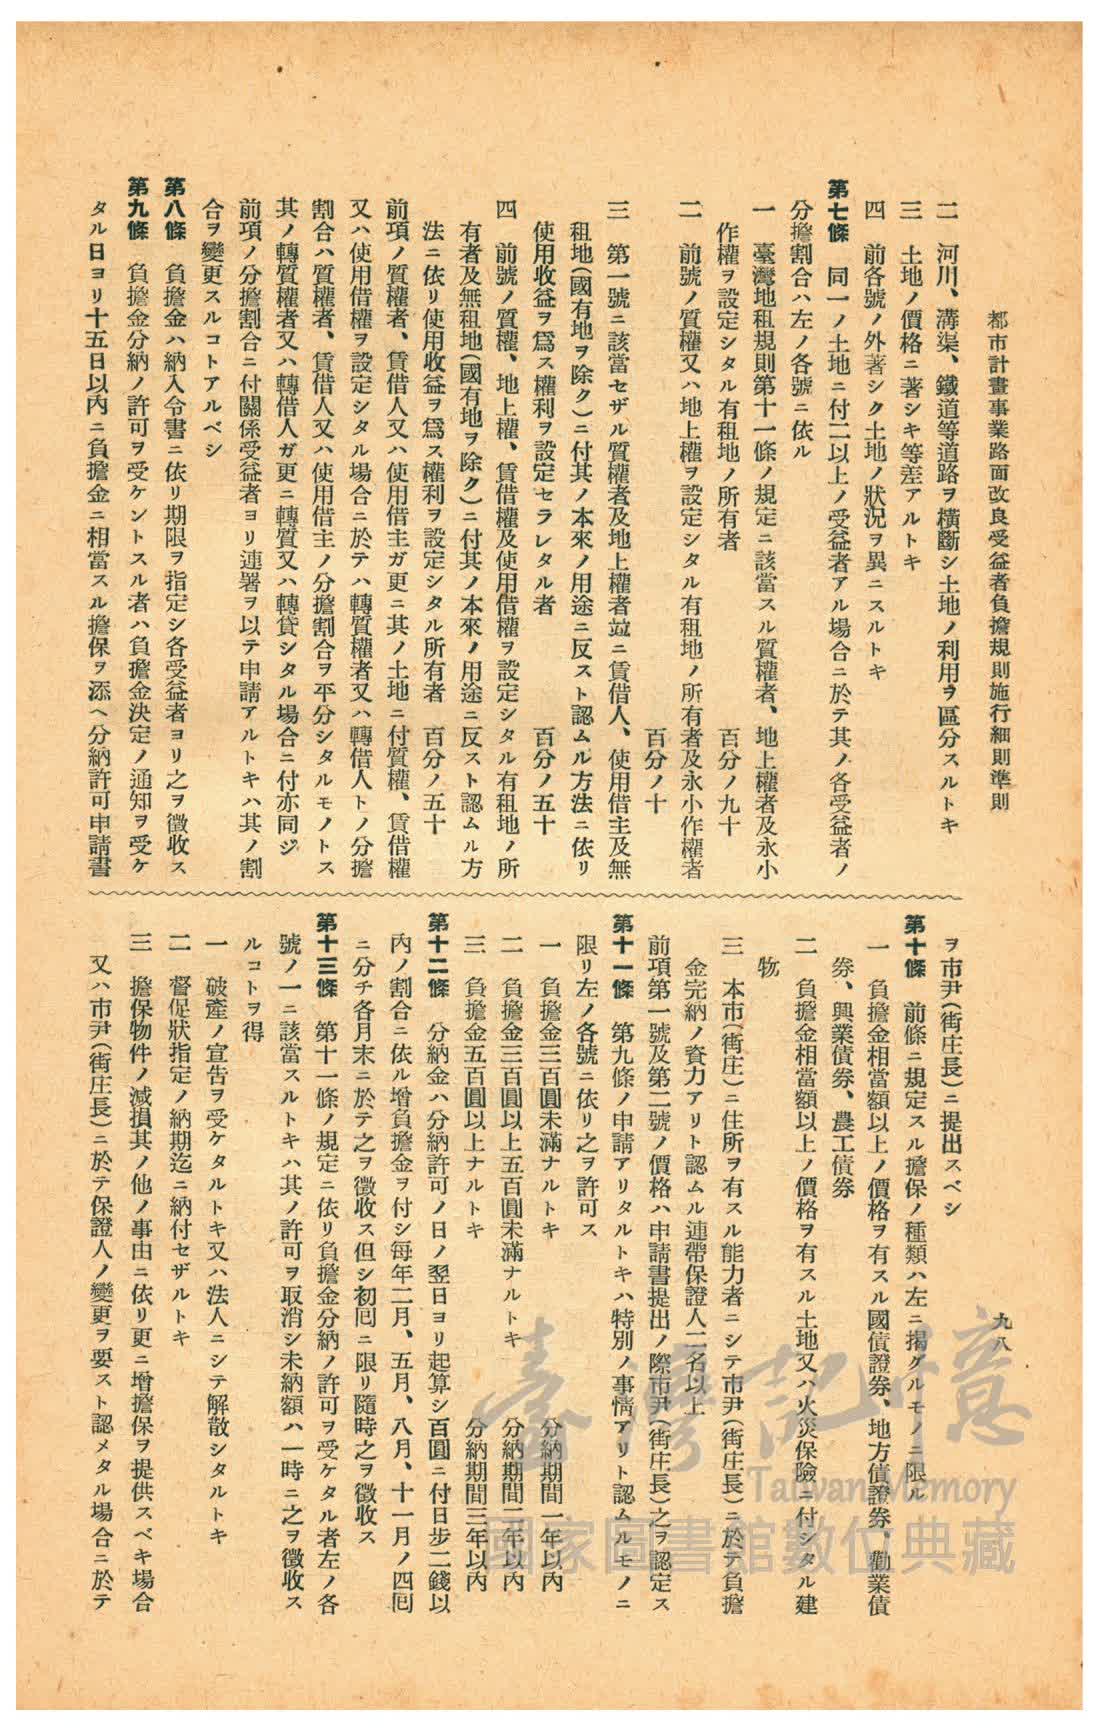 都市計畫事業路面改良受益者負擔規則施行細則準則
九八
二　河川、溝渠、鐵道等道路ヲ橫斷シ土地ノ利用ヲ區分スルトキ
三　土地ノ價格ニ著シキ等差アルトキ
四　前各號ノ外著シク土地ノ狀況ヲ異ニスルトキ
第七條　同一ノ土地ニ付二以上ノ受益者アル場合ニ於テ其ノ各受益者ノ
分擔割合ハ左ノ各號ニ依ル
一　臺灣地租規則第十一條ノ規定ニ該當スル質權者、地上權者及永小
作權ヲ設定シタル有租地ノ所有者　百分ノ九十
二　前號ノ質權又ハ地上權ヲ設定シタル有租地ノ所有者及永小作權者
百分ノ十
三　第一號ニ該當セザル質權者及地上權者竝ニ賃借人、使用借主及無
租地(國有地ヲ除ク)ニ付其ノ本來ノ用途ニ反スト認ムル方法ニ依リ
使用收益ヲ爲ス權利ヲ設定セラレタル者　百分ノ五十
四　前號ノ質權、地上權、賃借權及使用借權ヲ設定シタル有租地ノ所
有者及無租地(國有地ヲ除ク)ニ付其ノ本來ノ用途ニ反スト認ムル方
法ニ依リ使用收益ヲ爲ス權利ヲ設定シタル所有者　百分ノ五十
前項ノ質權者、賃借人又ハ使用借主ガ更ニ其ノ土地ニ付質權、賃借權
又ハ使用借權ヲ設定シタル場合ニ於テハ轉質權者又ハ轉借人トノ分擔
割合ハ質權者、賃借人又ハ使用借主ノ分擔割合ヲ平分シタルモノトス
其ノ轉質權者又ハ轉借人ガ更ニ轉質又ハ轉貸シタル場合ニ付亦同ジ
前項ノ分擔割合ニ付關係受益者ヨリ連署ヲ以テ申請アルトキハ其ノ割
合ヲ變更スルコトアルベシ
第八條　負擔金ハ納入令書ニ依リ期限ヲ指定シ各受益者ヨリ之ヲ徵收ス
第九條　負擔金分納ノ許可ヲ受ケントスル者ハ負擔金決定ノ通知ヲ受ケ
タル日ヨリ十五日以內ニ負擔金ニ相當スル擔保ヲ添ヘ分納許可申請書
ヲ市尹(街庄長)ニ提出スベシ
第十條　前條ニ規定スル擔保ノ種類ハ左ニ揭グルモノニ限ル
一　負擔金相當額以上ノ價格ヲ有スル國債證券、地方債證券、勸業債
券、興業債券、農工債券
二　負擔金相當額以上ノ價格ヲ有スル土地又ハ火災保險ニ付シタル建
物
三　本市(街庄)ニ住所ヲ有スル能力者ニシテ市尹(街庄長)ニ於テ負擔
金完納ノ資力アリト認ムル連帶保證人二名以上
前項第一號及第二號ノ價格ハ申請書提出ノ際市尹(街庄長)之ヲ認定ス
第十一條　第九條ノ申請アリタルトキハ特別ノ事情アリト認ムルモノニ
限リ左ノ各號ニ依リ之ヲ許可ス
一　負擔金三百圓未滿ナルトキ　分納期間一年以內
二　負擔金三百圓以上五百圓未滿ナルトキ　分納期間二年以內
三　負擔金五百圓以上ナルトキ　分納期間三年以內
第十二條　分納金ハ分納許可ノ日ノ翌日ヨリ起算シ百圓ニ付日步二錢以
內ノ割合ニ依ル增負擔金ヲ付シ每年二月、五月、八月、十一月ノ四囘
ニ分チ各月末ニ於テ之ヲ徵收ス但シ初囘ニ限リ隨時之ヲ徵收ス
第十三條　第十一條ノ規定ニ依リ負擔金分納ノ許可ヲ受ケタル者左ノ各
號ノ一ニ該當スルトキハ其ノ許可ヲ取消シ未納額ハ一時ニ之ヲ徵收ス
ルコトヲ得
一　破產ノ宣告ヲ受ケタルトキ又ハ法人ニシテ解散シタルトキ
二　督促狀指定ノ納期迄ニ納付セザルトキ
三　擔保物件ノ減損其ノ他ノ事由ニ依リ更ニ增擔保ヲ提供スベキ場合
又ハ市尹(街庄長)ニ於テ保證人ノ變更ヲ要スト認メタル場合ニ於テ
臺灣記憶
Taiwan Memory
國家圖書館數位典藏